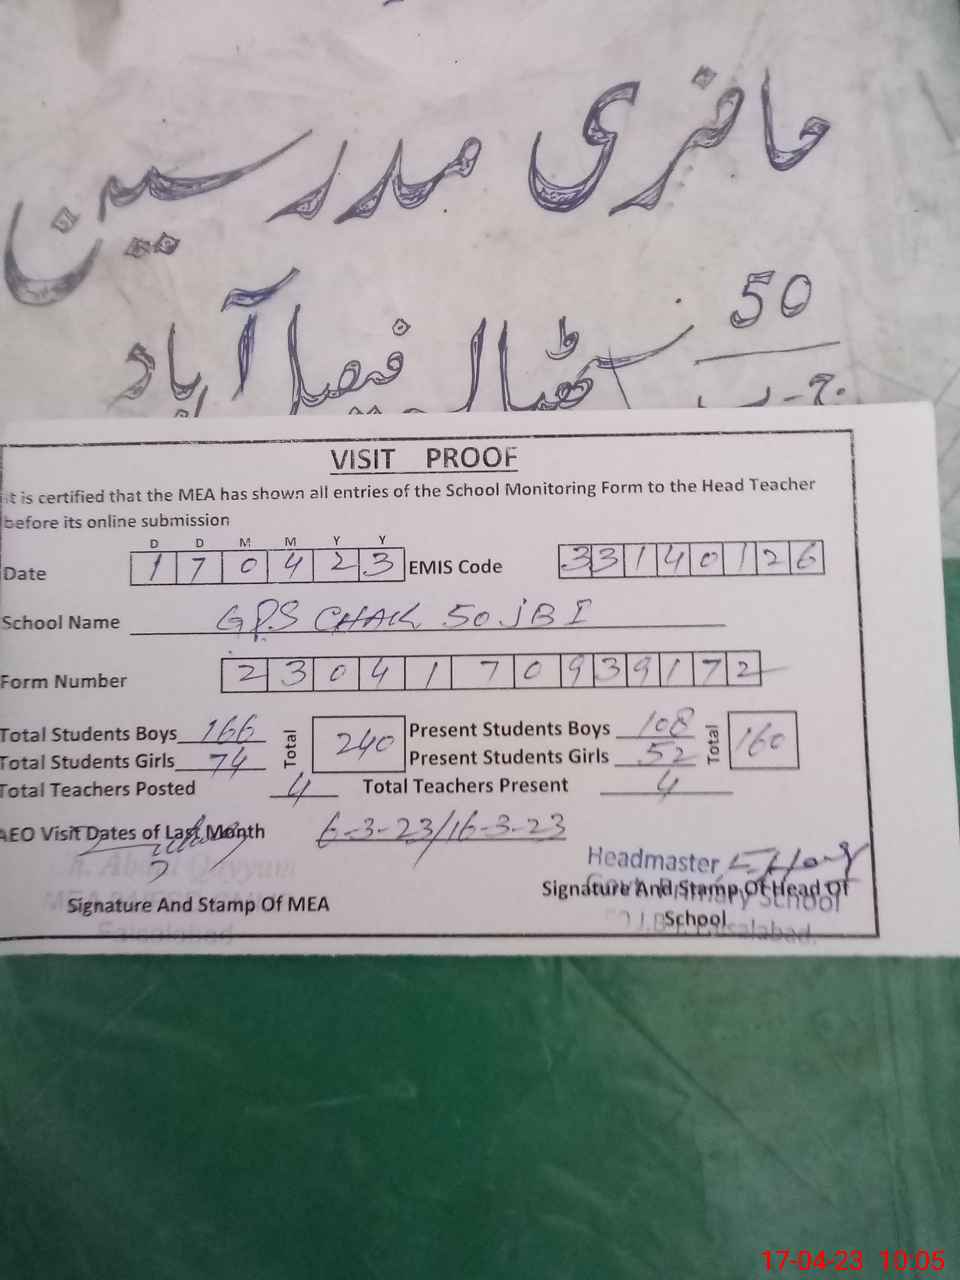 حاضری مدرسین
50
ج-ب
کٹھیالہ فیصل آباد
VISIT PROOF
it is certified that the MEA has shown all entries of the School Monitoring Form to the Head Teacher
before its online submission
D D M M Y Y
Date 1 7 0 4 2 3 EMIS Code 3 3 1 4 0 1 2 6
School Name GPS CHAK 50 JB I
Form Number 2 3 0 4 1 7 0 9 3 9 1 7 2
Total Students Boys 166 Total 240 Present Students Boys 108 Total 160
Total Students Girls 74 Present Students Girls 52
Total Teachers Posted 4 Total Teachers Present 4
AEO Visit Dates of Last Month 6-3-23/16-3-23
Headmaster
Abdul Qayyum
Signature And Stamp Of MEA
Signature And Stamp Of Head Of
School
Primary School
Faisalabad
J.B Faisalabad.
17-04-23 10:05